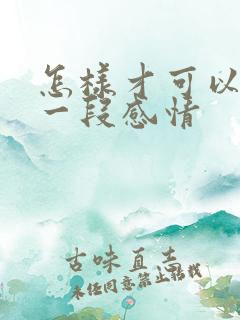 怎樣才可以
一段感情
古味直志
未经同意禁止转载